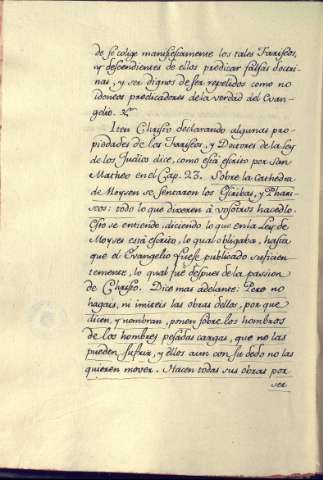 de se colige manifiestamente los tales Fariseos,
y descendientes de ellos, predicar falsas doctri-
nas, y ser dignos de ser repelidos como no
idoneos predicadores de la verdad del Evan-
gelio. &ra
Iten Christo declarando algunas pro-
piedades de los Fariseos, y Doctores de la Ley
de los Judios dice, como está escrito por San
Matheo en el Cap. 23. Sobre la Cathedra
de Moysen se sentaron los Escribas, y Phari-
seos: todo lo que dixeren á vosotros hacedlo.
Esto se entiende, diciendo lo que en la Ley de
Moyses está escrito, lo qual obligaba, hasta
que el Evangelio fuese publicado suficien-
temente, lo qual fué despues de la passion
de Christo. Dice mas adelante: Pero no
hagais, ni imiteis las obras dellos, por que
dicen, y nombran, ponen sobre los hombros
de los hombres pesadas cargas, que no las
pueden sufrir, y ellos aun con su dedo no las
quieren mover. Hacen todas sus obras por
ser